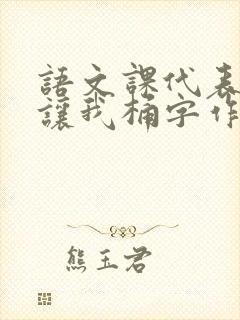 語文課代表
讓我桶字作
熊玉君